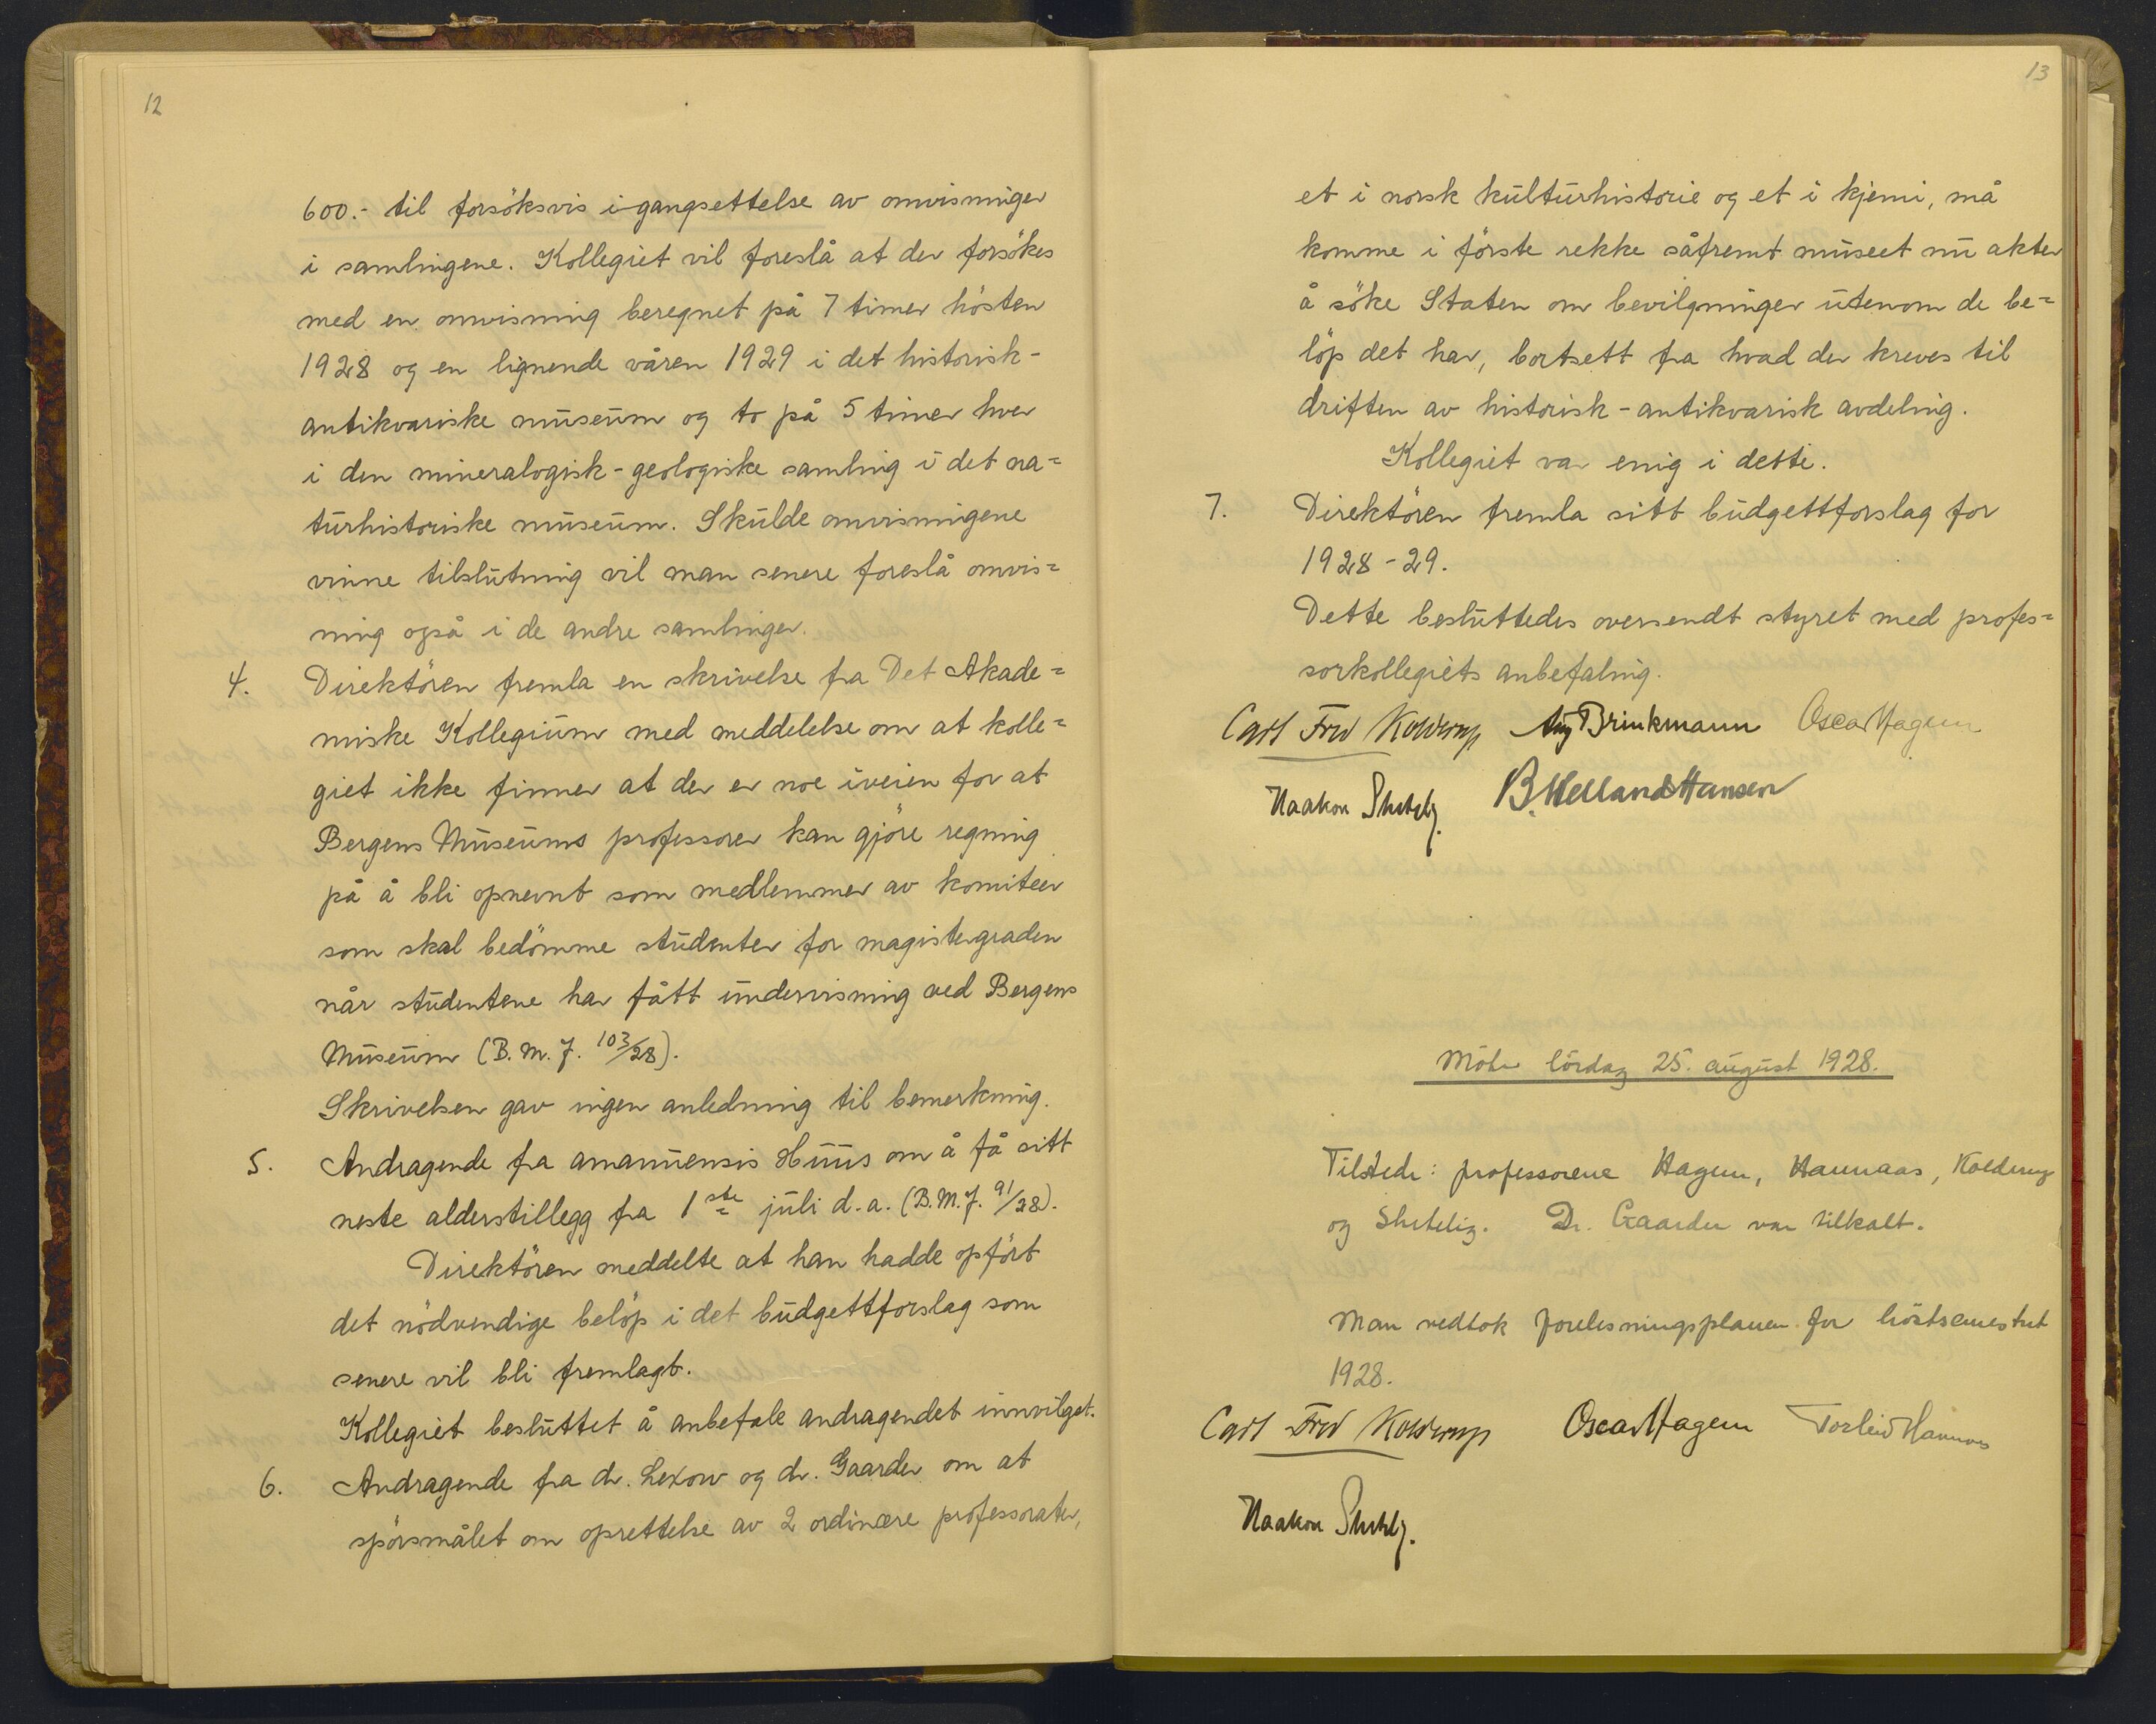 12
600.- til forsöksvis i-gangsettelse av omvisninger
i samlingene. Kollegiet vil foreslå at der forsökes
med en omvisning beregnet på 7 timer hösten
1928 og en lignende våren 1929 i det historisk-
antikvariske museum og to på 5 timer hver
i den mineralogisk-geologiske samling i det na=
turhistoriske museum. Skulde omvisningene
vinne tilslutning vil man senere foreslå omvis=
ning også i de andre samlinger.
4. Direktören fremla en skrivelse fra Det Akade=
miske Kollegium med meddelelse om at kolle=
giet ikke finner at der er noe iveien for at
Bergens Museums professorer kan gjöre regning
på å bli opnevnt som medlemmer av komiteer
som skal bedömme studenter for magistergraden
når studentene har fått undervisning ved Bergens
Museum (B.M.J. 103/28).
Skrivelsen gav ingen anledning til bemerkning.
5. Andragende fra amanuensis Huus om å få sitt
neste alderstillegg fra 1ste juli d.a. (B.M.J. 91/28).
Direktören meddelte at han hadde opfört
det nödvendige belöp i det budgettforslag som
senere vil bli fremlagt.
Kollegiet besluttet å anbefale andragendet innvilget.
6. Andragende fra dr. Lexow og dr. Gaarder om at
spörsmålet om oprettelse av 2 ordinære professorater,
13
et i norsk kulturhistorie og et i kjemi, må
komme i förste rekke såfremt museet nu akter
å söke Staten om bevilgninger utenom de be=
löp det har, bortsett fra hvad der kreves til
driften av historisk-antikvarisk avdeling.
Kollegiet var enig i dette.
7. Direktören fremla sitt budgettforslag for
1928-29.
Dette besluttedes oversendt styret med profes=
sorkollegiets anbefaling.
Carl Fred Kolderup Aug Brinkmann Oscar Hagem
Haakon Shetelig. B. Helland Hansen
Möte lördag 25. august 1928.
Tilstede: professorene Hagem, Hannaas, Kolderup
og Shetelig. Dr. Gaarder var tilkalt.
Man vedtok forelesningsplanen for höstsemestret
1928.
Carl Fred Kolderup Oscar Hagem Torleiv Hannaas
Haakon Shetelig.